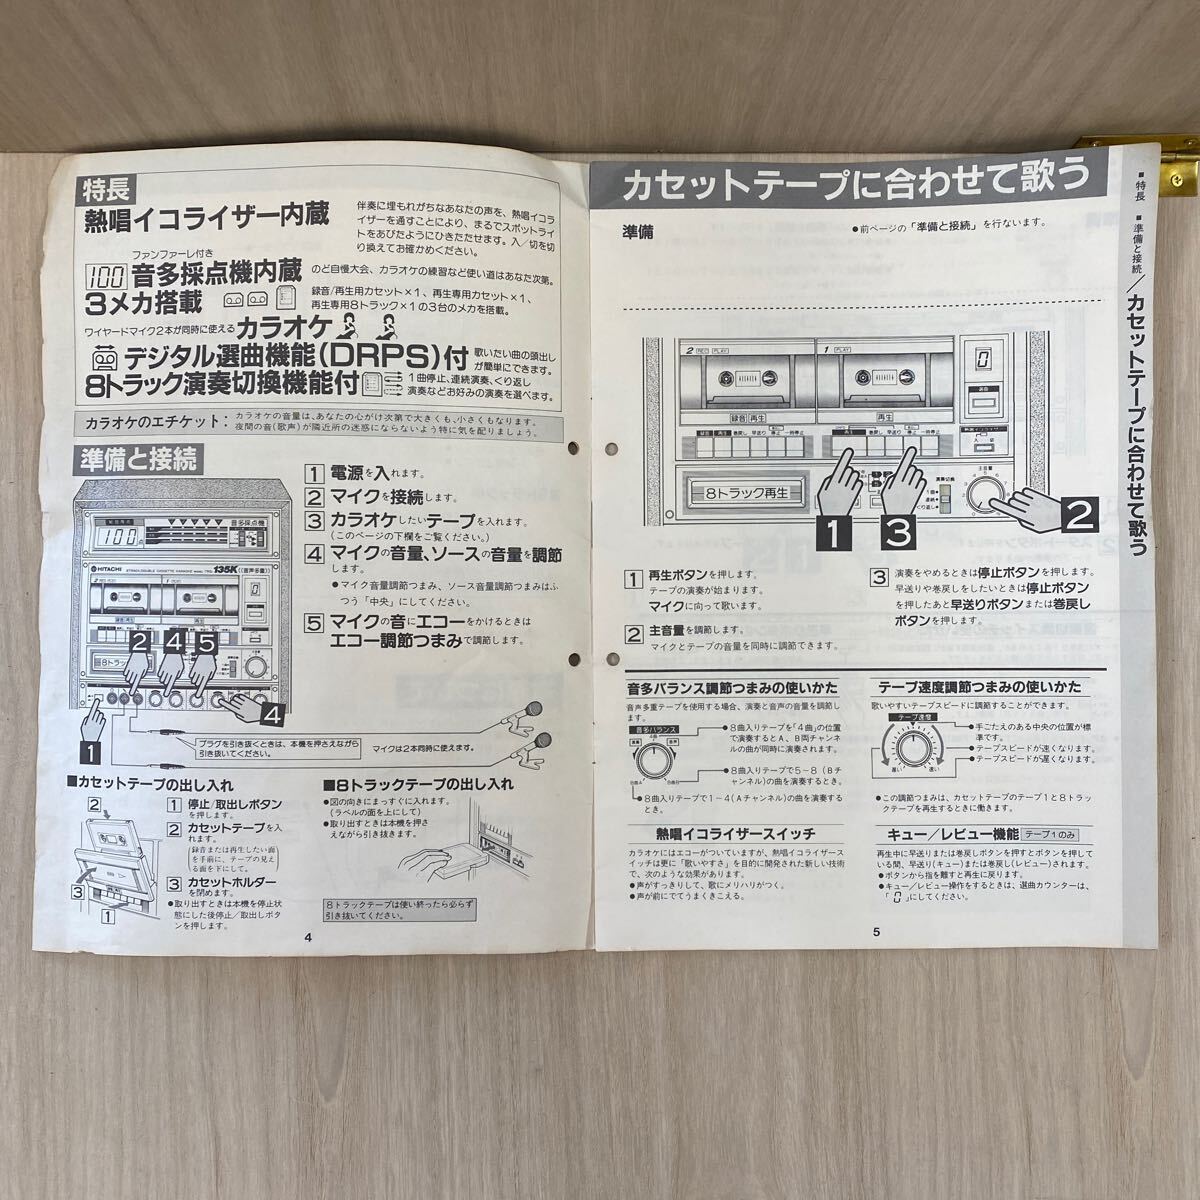 特長
熱唱イコライザー内蔵
伴奏に埋もれがちなあなたの声を、熱唱イコラ
イザーを通すことにより、まるでスポットライ
トをあびたようにひきたたせます。入／切を切
り換えてお確かめください。
ファンファーレ付き
100 音多採点機内蔵
のど自慢大会、カラオケの練習など使い道はあなた次第。
3メカ搭載
録音/再生用カセット×1、再生専用カセット×1、
再生専用8トラック×1の3台のメカを搭載。
ワイヤードマイク2本が同時に使える カラオケ
デジタル選曲機能(DRPS)付
歌いたい曲の頭出し
が簡単にできます。
8トラック演奏切換機能付
1曲停止、連続演奏、くり返し
演奏などお好みの演奏を選べます。
カラオケのエチケット・
カラオケの音量は、あなたの心がけ次第で大きくも、小さくもなります。
夜間の音(歌声)が隣近所の迷惑にならないよう特に気を配りましょう。
準備と接続
1 電源を入れます。
2 マイクを接続します。
3 カラオケしたいテープを入れます。
(このページの下欄をご覧ください。)
4 マイクの音量、ソースの音量を調節
します。
●マイク音量調節つまみ、ソース音量調節つまみはふ
つう「中央」にしてください。
5 マイクの音にエコーをかけるときは
エコー調節つまみで調節します。
100
音多採点機
HITACHI
135K
(音声多重)
録音/再生
再生
8トラック
2 4 5
1
4
プラグを引き抜くときは、本機を押さえながら
引き抜いてください。
マイクは2本同時に使えます。
■カセットテープの出し入れ
2
3
1
1 停止/取出しボタン
を押します。
2 カセットテープを入
れます。
録音または再生したい面
を手前に、テープの見え
る面を下にして。
3 カセットホルダー
を閉めます。
●取り出すときは本機を停止状
態にした後停止／取出しボタ
ンを押します。
■8トラックテープの出し入れ
●図の向きにまっすぐに入れます。
(ラベルの面を上にして)
●取り出すときは本機を押さ
えながら引き抜きます。
8トラックテープは使い終ったら必らず
引き抜いてください。
4
カセットテープに合わせて歌う
準備
●前ページの「準備と接続」を行ないます。
2 REC PLAY
1 PLAY
録音/再生
再生
0
選曲
熱唱イコライザー
入 切
録音 再生 巻戻し 早送り 停止 一時停止
再生 巻戻し 早送り 停止 一時停止
8トラック再生
演奏切換
1曲
連続
くり返し
主音量
1
3
2
1 再生ボタンを押します。
テープの演奏が始まります。
マイクに向って歌います。
2 主音量を調節します。
マイクとテープの音量を同時に調節できます。
3 演奏をやめるときは停止ボタンを押します。
早送りや巻戻しをしたいときは停止ボタン
を押したあと早送りボタンまたは巻戻し
ボタンを押します。
音多バランス調節つまみの使いかた
音声多重テープを使用する場合、演奏と音声の音量を調節し
ます。
音多バランス
4曲
演奏
音声
8曲A
8曲B
●8曲入りテープを「4曲」の位置
で演奏するとA、B両チャンネ
ルの曲が同時に演奏されます。
●8曲入りテープで5～8(Bチ
ャンネル)の曲を演奏するとき。
●8曲入りテープで1～4(Aチャンネル)の曲を演奏する
とき。
熱唱イコライザースイッチ
カラオケにはエコーがついていますが、熱唱イコライザース
イッチは更に「歌いやすさ」を目的に開発された新しい技術
で、次のような効果があります。
●声がすっきりして、歌にメリハリがつく。
●声が前にでてうまくきこえる。
テープ速度調節つまみの使いかた
歌いやすいテープスピードに調節することができます。
テープ速度
遅い
速い
●手ごたえのある中央の位置が標
準です。
●テープスピードが速くなります。
●テープスピードが遅くなります。
●この調節つまみは、カセットテープのテープ1と8トラッ
クテープを再生するときに働きます。
キュー／レビュー機能 テープ1のみ
再生中に早送りまたは巻戻しボタンを押すとボタンを押して
いる間、早送り(キュー)または巻戻し(レビュー)されます。
●ボタンから指を離すと再生に戻ります。
●キュー／レビュー操作をするときは、選曲カウンターは、
「0」にしてください。
5
■特長 ■準備と接続／カセットテープに合わせて歌う